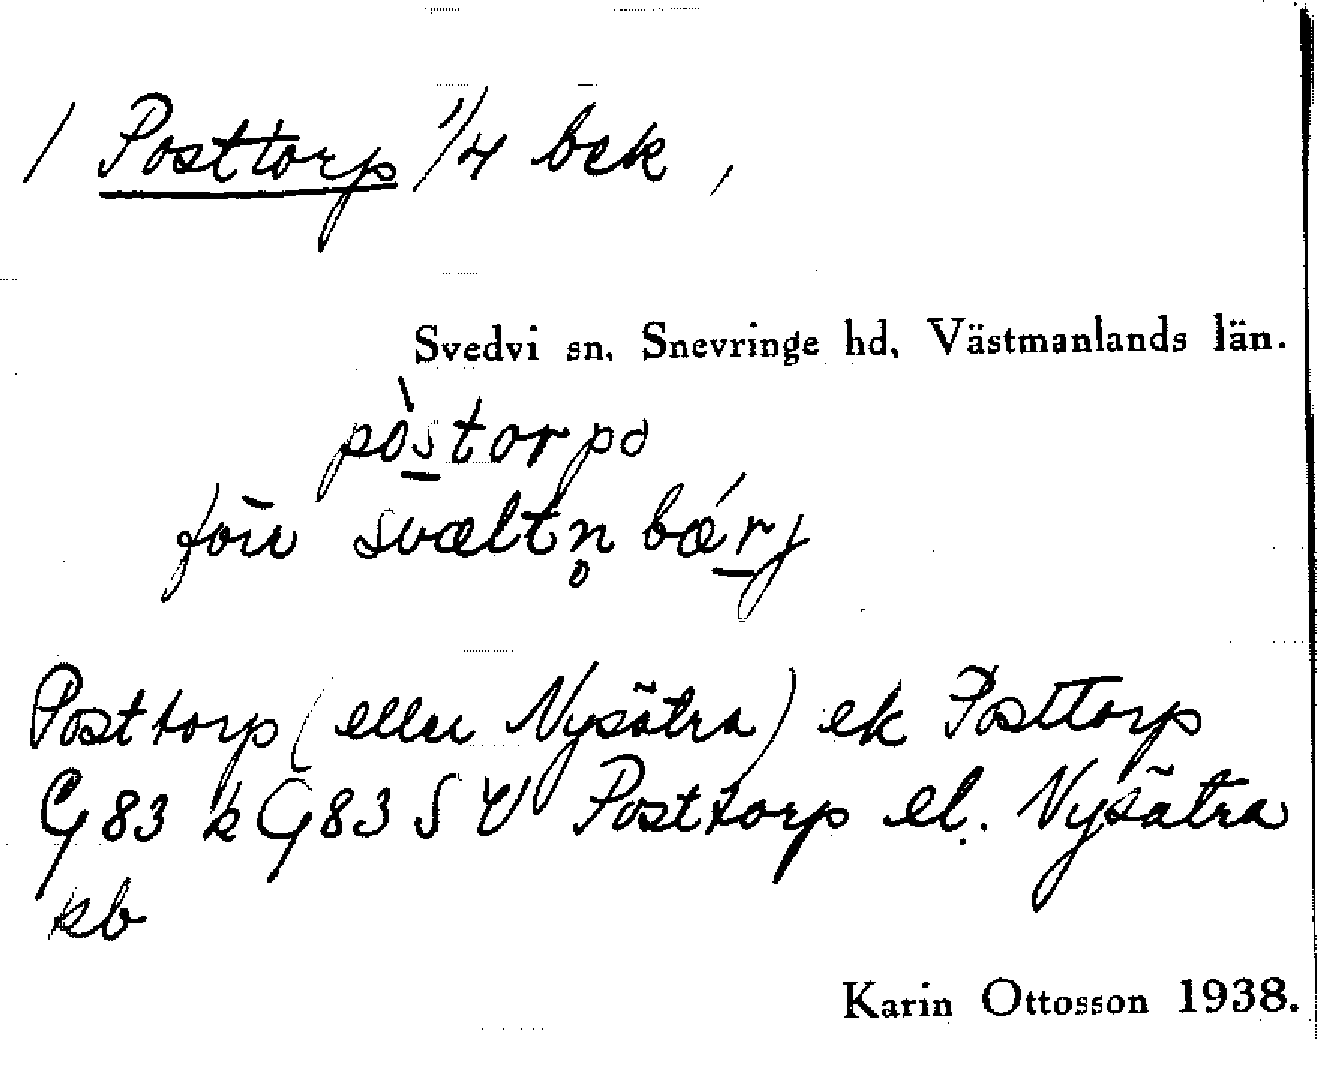 / Posttorp 1/4 bek,
Svedvi sn. Snevringe hd, Västmanlands län.
pòstorpə
förr svæltn̥ bǽrj
Posttorp (eller Nysätra) ek Posttorp
G83 k G83 S V Posttorp el. Nysätra
kb
Karin Ottosson 1938.